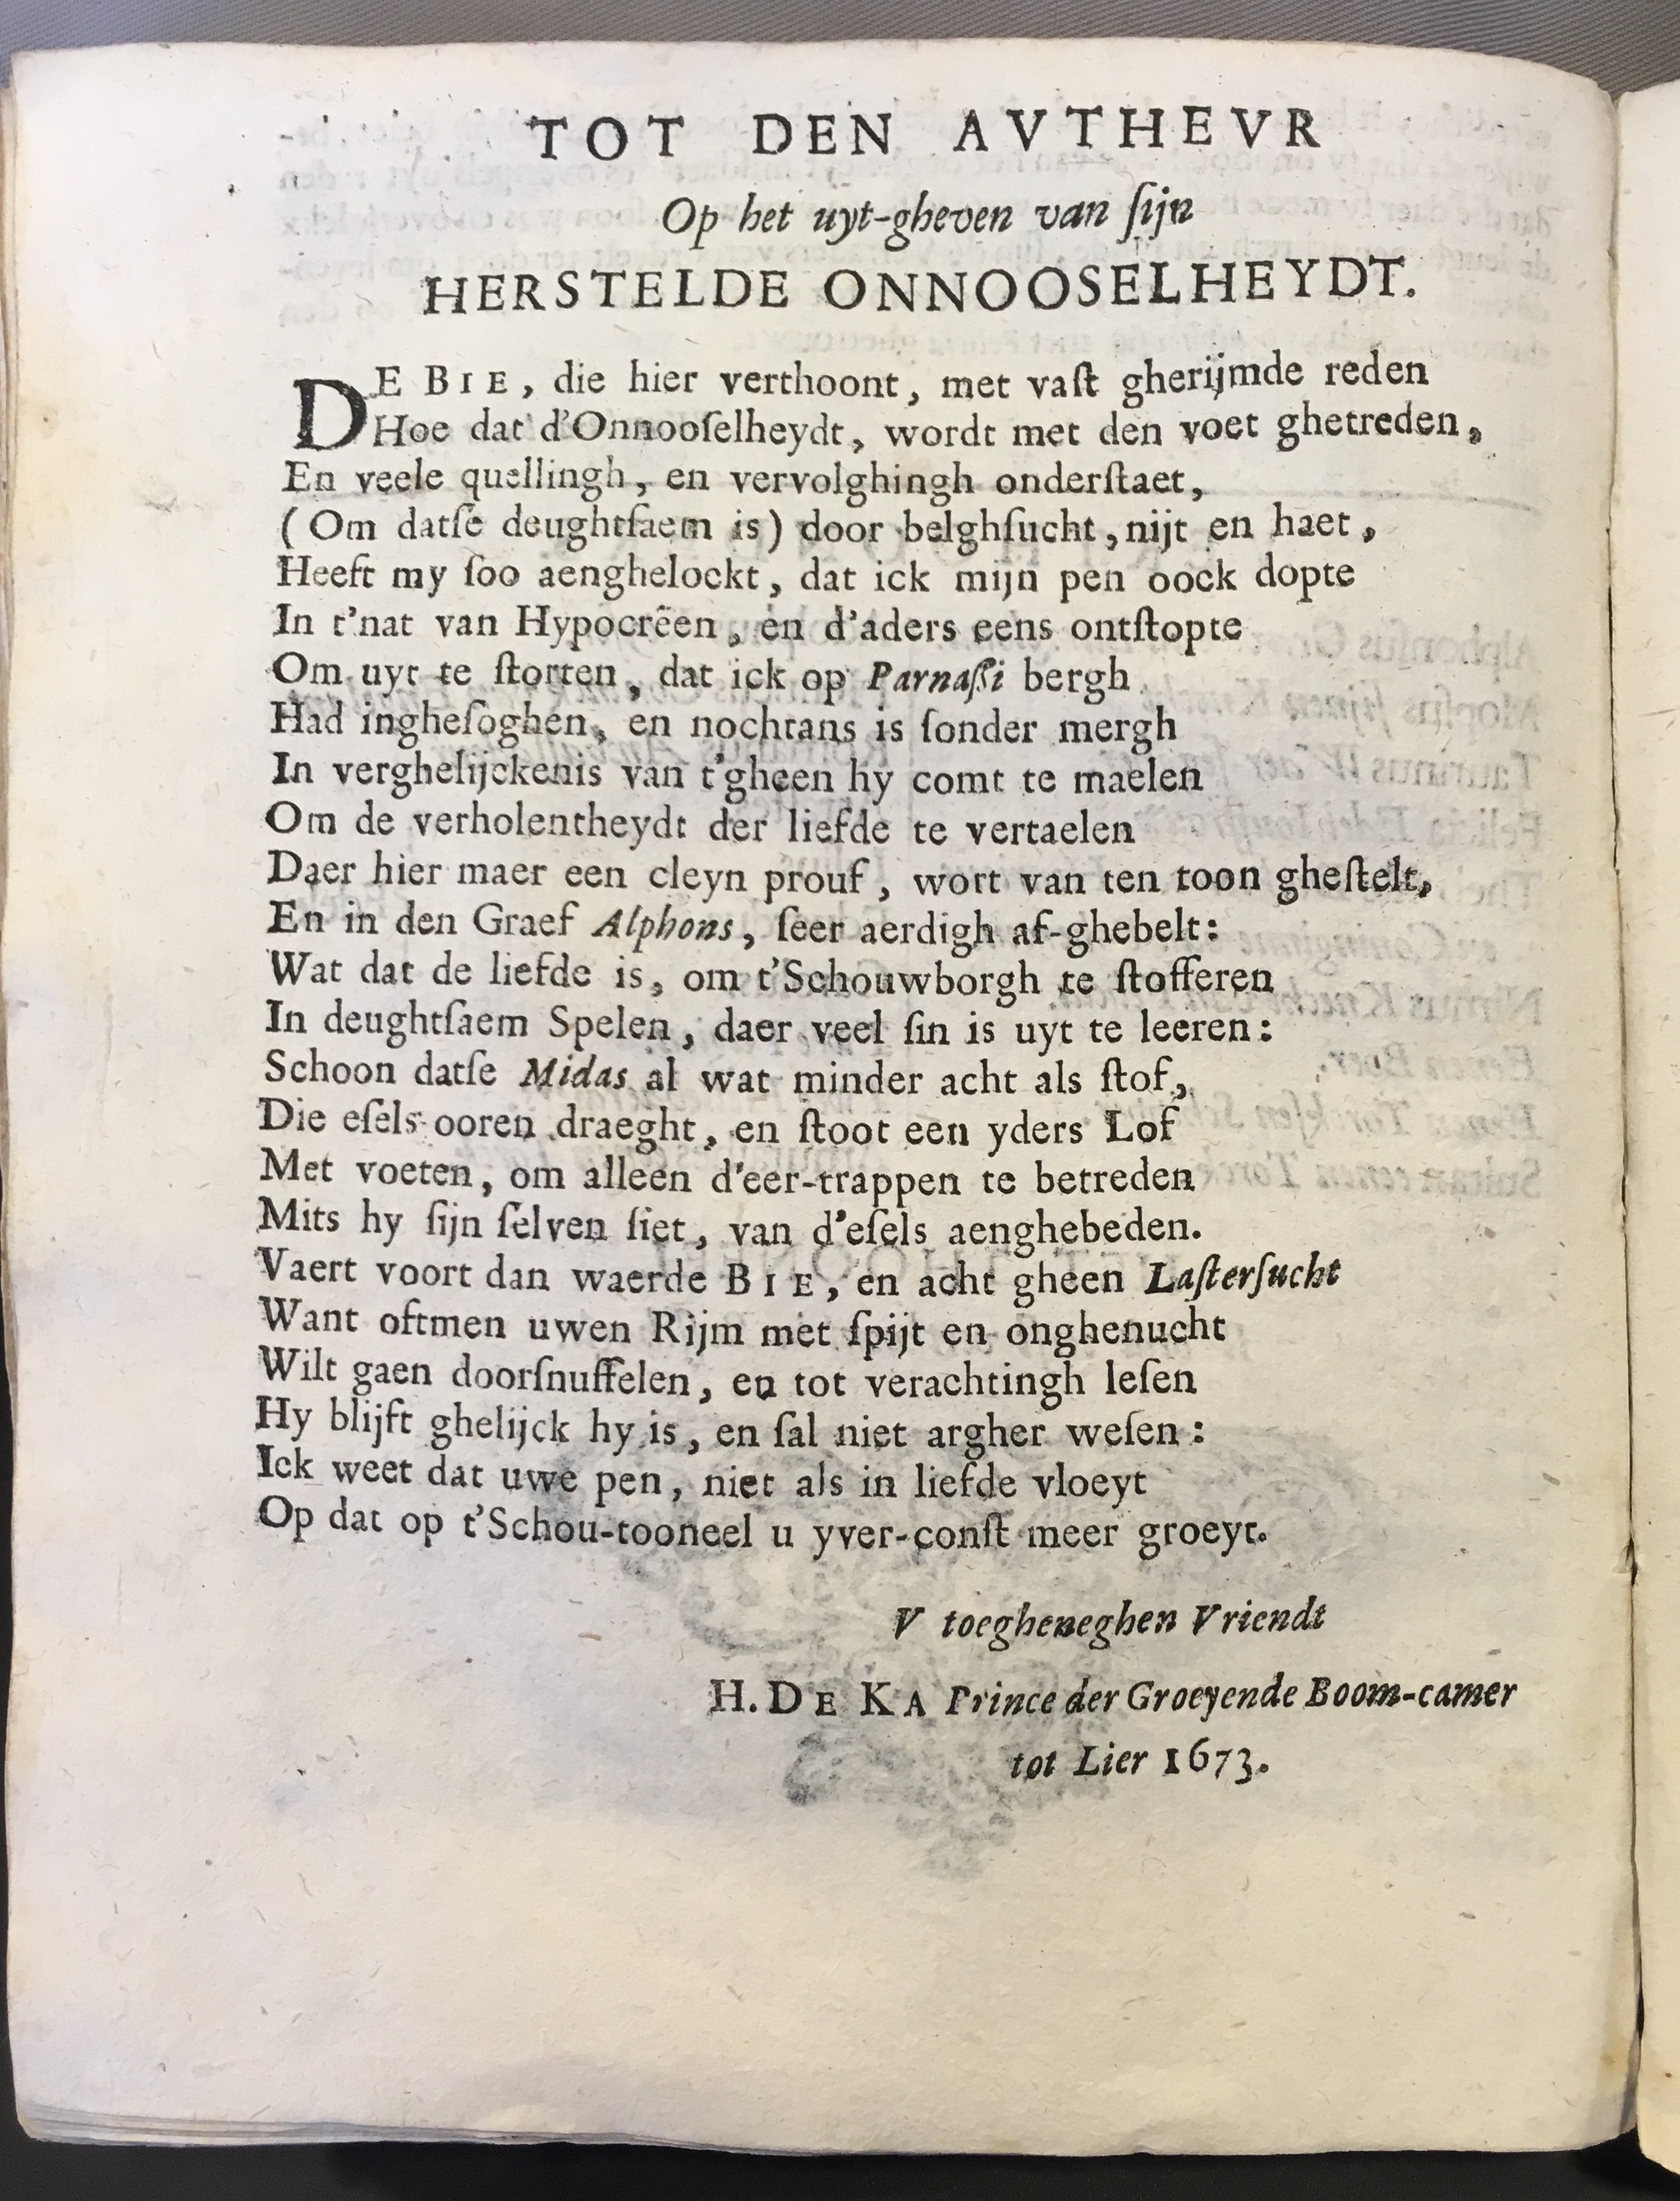 TOT DEN AVTHEVR
Op het uyt-gheven van ſijn
HERSTELDE ONNOOSELHEYDT.
DE BIE, die hier verthoont, met vaſt gherijmde reden
Hoe dat d'Onnooſelheydt, wordt met den voet ghetreden,
En veele quellingh, en vervolghingh onderſtaet,
(Om datſe deughtſaem is) door belghſucht, nijt en haet,
Heeft my ſoo aenghelockt, dat ick mijn pen oock dopte
In t'nat van Hypocrëen, en d'aders eens ontſtopte
Om uyt te ſtorten, dat ick op Parnaſſi bergh
Had ingheſoghen, en nochtans is ſonder mergh
In verghelijckenis van t'gheen hy comt te maelen
Om de verholentheydt der liefde te vertaelen
Daer hier maer een cleyn prouf, wort van ten toon gheſtelt,
En in den Graef Alphons, ſeer aerdigh af-ghebelt:
Wat dat de liefde is, om t'Schouwborgh te ſtofferen
In deughtſaem Spelen, daer veel ſin is uyt te leeren:
Schoon datſe Midas al wat minder acht als ſtof,
Die eſels ooren draeght, en ſtoot een yders Lof
Met voeten, om alleen d'eer-trappen te betreden
Mits hy ſijn ſelven ſiet, van d'eſels aenghebeden.
Vaert voort dan waerde BIE, en acht gheen Laſterſucht
Want oftmen uwen Rijm met ſpijt en onghenucht
Wilt gaen doorſnuffelen, en tot verachtingh leſen
Hy blijft ghelijck hy is, en ſal niet argher weſen:
Ick weet dat uwe pen, niet als in liefde vloeyt
Op dat op t'Schou-tooneel u yver-conſt meer groeyt.
V toegheneghen Vriendt
H. DE KA Prince der Groeyende Boom-camer
tot Lier 1673.